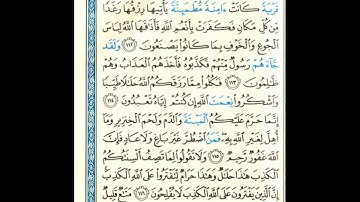 قَرْيَةً كَانَتْ ءَامِنَةً مُّطْمَئِنَّةً يَأْتِيهَا رِزْقُهَا رَغَدًا
مِّن كُلِّ مَكَانٍ فَكَفَرَتْ بِأَنْعُمِ ٱللَّهِ فَأَذَٰقَهَا ٱللَّهُ لِبَاسَ
ٱلْجُوعِ وَٱلْخَوْفِ بِمَا كَانُوا۟ يَصْنَعُونَ ١١٢ وَلَقَدْ
جَآءَهُمْ رَسُولٌ مِّنْهُمْ فَكَذَّبُوهُ فَأَخَذَهُمُ ٱلْعَذَابُ وَهُمْ
ظَٰلِمُونَ ١١٣ فَكُلُوا۟ مِمَّا رَزَقَكُمُ ٱللَّهُ حَلَٰلًا طَيِّبًا
وَٱشْكُرُوا۟ نِعْمَتَ ٱللَّهِ إِن كُنتُمْ إِيَّاهُ تَعْبُدُونَ ١١٤
إِنَّمَا حَرَّمَ عَلَيْكُمُ ٱلْمَيْتَةَ وَٱلدَّمَ وَلَحْمَ ٱلْخِنزِيرِ وَمَآ
أُهِلَّ لِغَيْرِ ٱللَّهِ بِهِۦ فَمَنِ ٱضْطُرَّ غَيْرَ بَاغٍ وَلَا عَادٍ فَإِنَّ
ٱللَّهَ غَفُورٌ رَّحِيمٌ ١١٥ وَلَا تَقُولُوا۟ لِمَا تَصِفُ أَلْسِنَتُكُمُ
ٱلْكَذِبَ هَٰذَا حَلَٰلٌ وَهَٰذَا حَرَامٌ لِّتَفْتَرُوا۟ عَلَى ٱللَّهِ ٱلْكَذِبَ
إِنَّ ٱلَّذِينَ يَفْتَرُونَ عَلَى ٱللَّهِ ٱلْكَذِبَ لَا يُفْلِحُونَ ١١٦ مَتَٰعٌ قَلِيلٌ